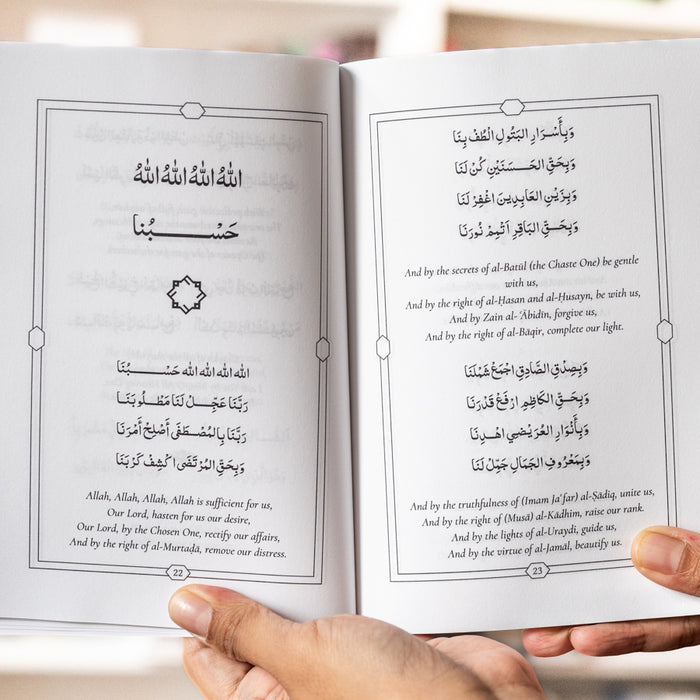 اللهُ اللهُ اللهُ اللهُ
حَسْبُنا
الله الله الله الله حَسْبُنا
رَبَّنا عَجِّلْ لَنا مَطْلُوبَنا
رَبَّنا بِالمُصْطَفَى أَصْلِحْ أَمْرَنا
وَبِحَقِّ المُرْتَضَى اكْشِفْ كَرْبَنا
Allah, Allah, Allah, Allah is sufficient for us,
Our Lord, hasten for us our desire,
Our Lord, by the Chosen One, rectify our affairs,
And by the right of al-Murtaḍā, remove our distress.
22
وَبِأَسْرَارِ البَتُولِ الْطُفْ بِنَا
وَبِحَقِّ الحَسَنَيْنِ كُنْ لَنَا
وَبِزَيْنِ العَابِدِينَ اغْفِرْ لَنَا
وَبِحَقِّ البَاقِرِ اَتْمِمْ نُورَنَا
And by the secrets of al-Batūl (the Chaste One) be gentle
with us,
And by the right of al-Ḥasan and al-Ḥusayn, be with us,
And by Zain al-ʿĀbidīn, forgive us,
And by the right of al-Bāqir, complete our light.
وَبِصِدْقِ الصَّادِقِ اجْمَعْ شَمْلَنَا
وَبِحَقِّ الكَاظِمِ ارْفَعْ قَدْرَنَا
وَبِأَنْوَارِ العُرَيْضِي اهْدِنَا
وَبِمَعْرُوفِ الجَمَالِ جَمِّلْ لَنَا
And by the truthfulness of (Imam Jaʿfar) al-Ṣādiq, unite us,
And by the right of (Musā) al-Kādhim, raise our rank.
And by the lights of al-Uraydī, guide us,
And by the virtue of al-Jamāl, beautify us.
23